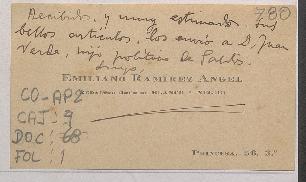 780
Recibidos, y muy estimados sus
bellos artículos, los envío a D. Juan
Verda, hijo político de Galdós.
EMILIANO RAMÍREZ ANGEL
BLANCO Y NEGRO
PRINCESA, 56, 3.º
CO-AP2
CAJ: 9
DOC: 68
FOL: 1